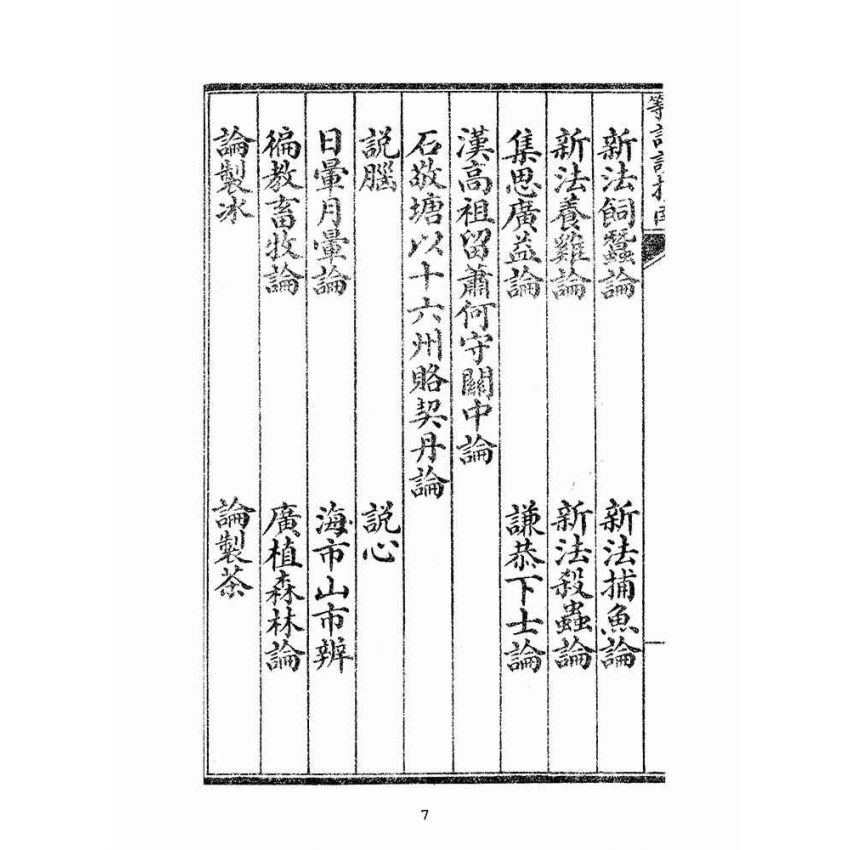 新法飼蠶論　新法捕魚論
新法養雞論　新法殺蟲論
集思廣益論　謙恭下士論
漢高祖留蕭何守關中論
石敬塘以十六州賂契丹論
説腦　説心
日暈月暈論　海市山市辨
徧教畜牧論　廣植森林論
論製冰　論製茶
7